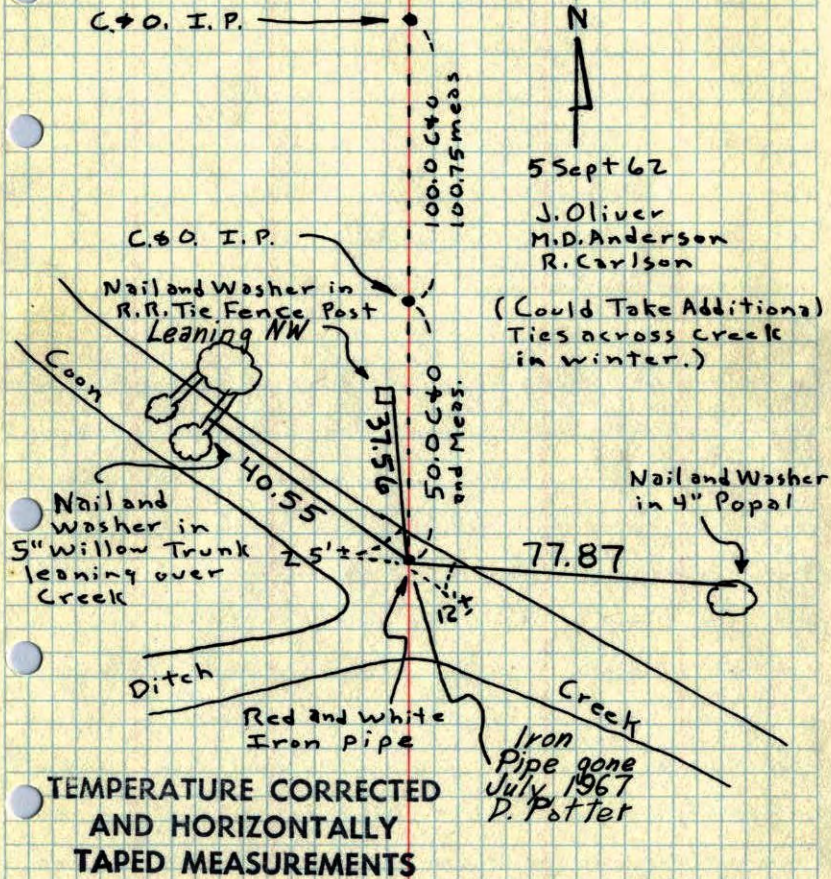 C. & O. I. P.
N
100.0 C&O
100.75 meas
5 Sept 62
J. Oliver
M.D. Anderson
R. Carlson
C. & O. I. P.
Nail and Washer in
R.R. Tie Fence Post
Leaning NW
(Could Take Additional
Ties across creek
in winter.)
Coon
37.56
50.0 C&O
and Meas.
40.55
Nail and
washer in
5" Willow Trunk
leaning over
Creek
Nail and Washer
in 4" Popal
5'±
77.87
12±
Ditch
Creek
Red and white
Iron pipe
Iron
Pipe gone
July 1967
D. Potter
TEMPERATURE CORRECTED
AND HORIZONTALLY
TAPED MEASUREMENTS